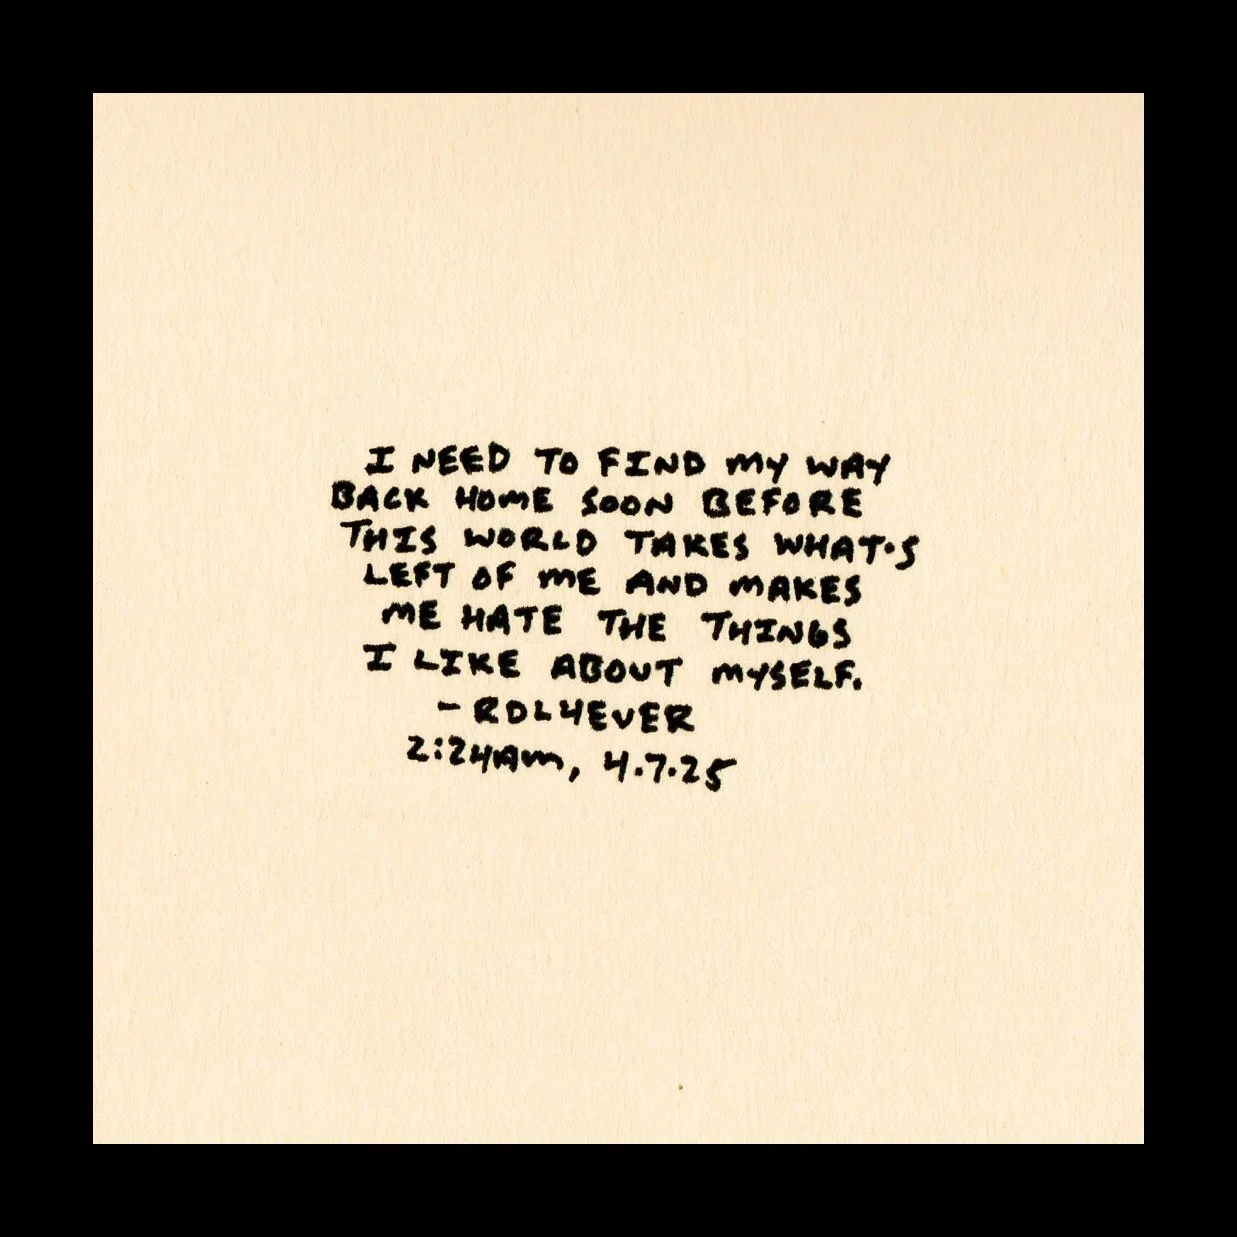 I NEED TO FIND MY WAY
BACK HOME SOON BEFORE
THIS WORLD TAKES WHAT'S
LEFT OF ME AND MAKES
ME HATE THE THINGS
I LIKE ABOUT MYSELF.
- RDL4EVER
2:24AM, 4.7.25